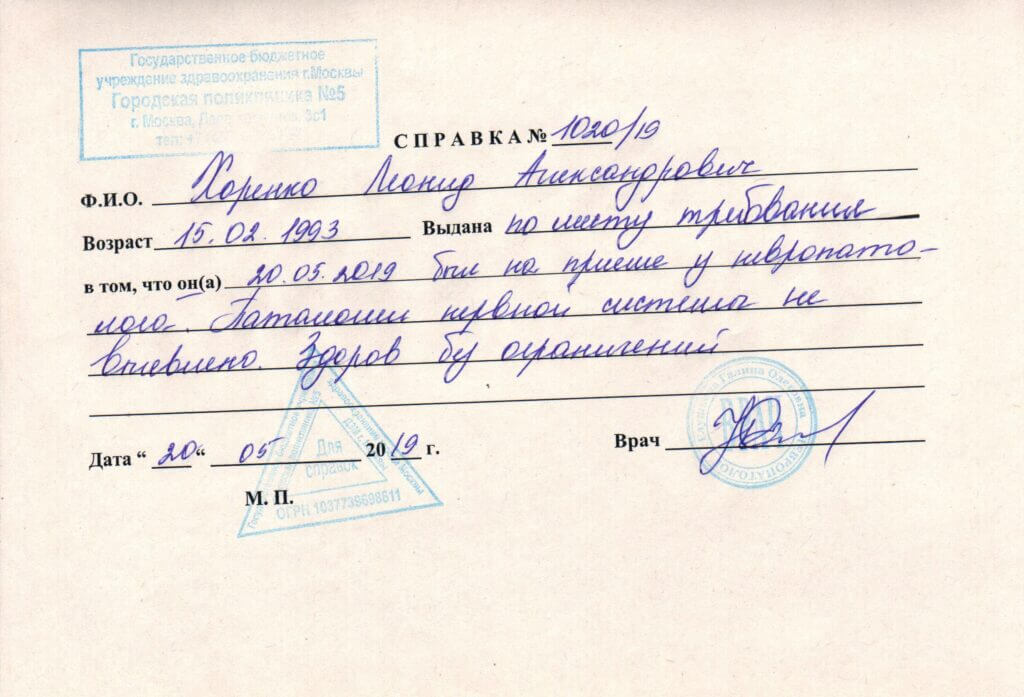 Государственное бюджетное
учреждение здравоохранения г.Москвы
Городская поликлиника №5
г. Москва, 3с1
тел:
СПРАВКА № 1020/19
Ф.И.О. Хоренко Леонид Александрович
Возраст 15.02.1993 Выдана по месту требования
в том, что он(а) 20.05.2019 был на приеме у невропато-
лога. Патологии нервной системы не
выявлено. Здоров без ограничений
Дата “ 20 “ 05 20 19 г. Врач
М. П.
Для
справок
ОГРН 1037739698611
Галина Олеговна
ВРАЧ
НЕВРОПАТОЛОГ